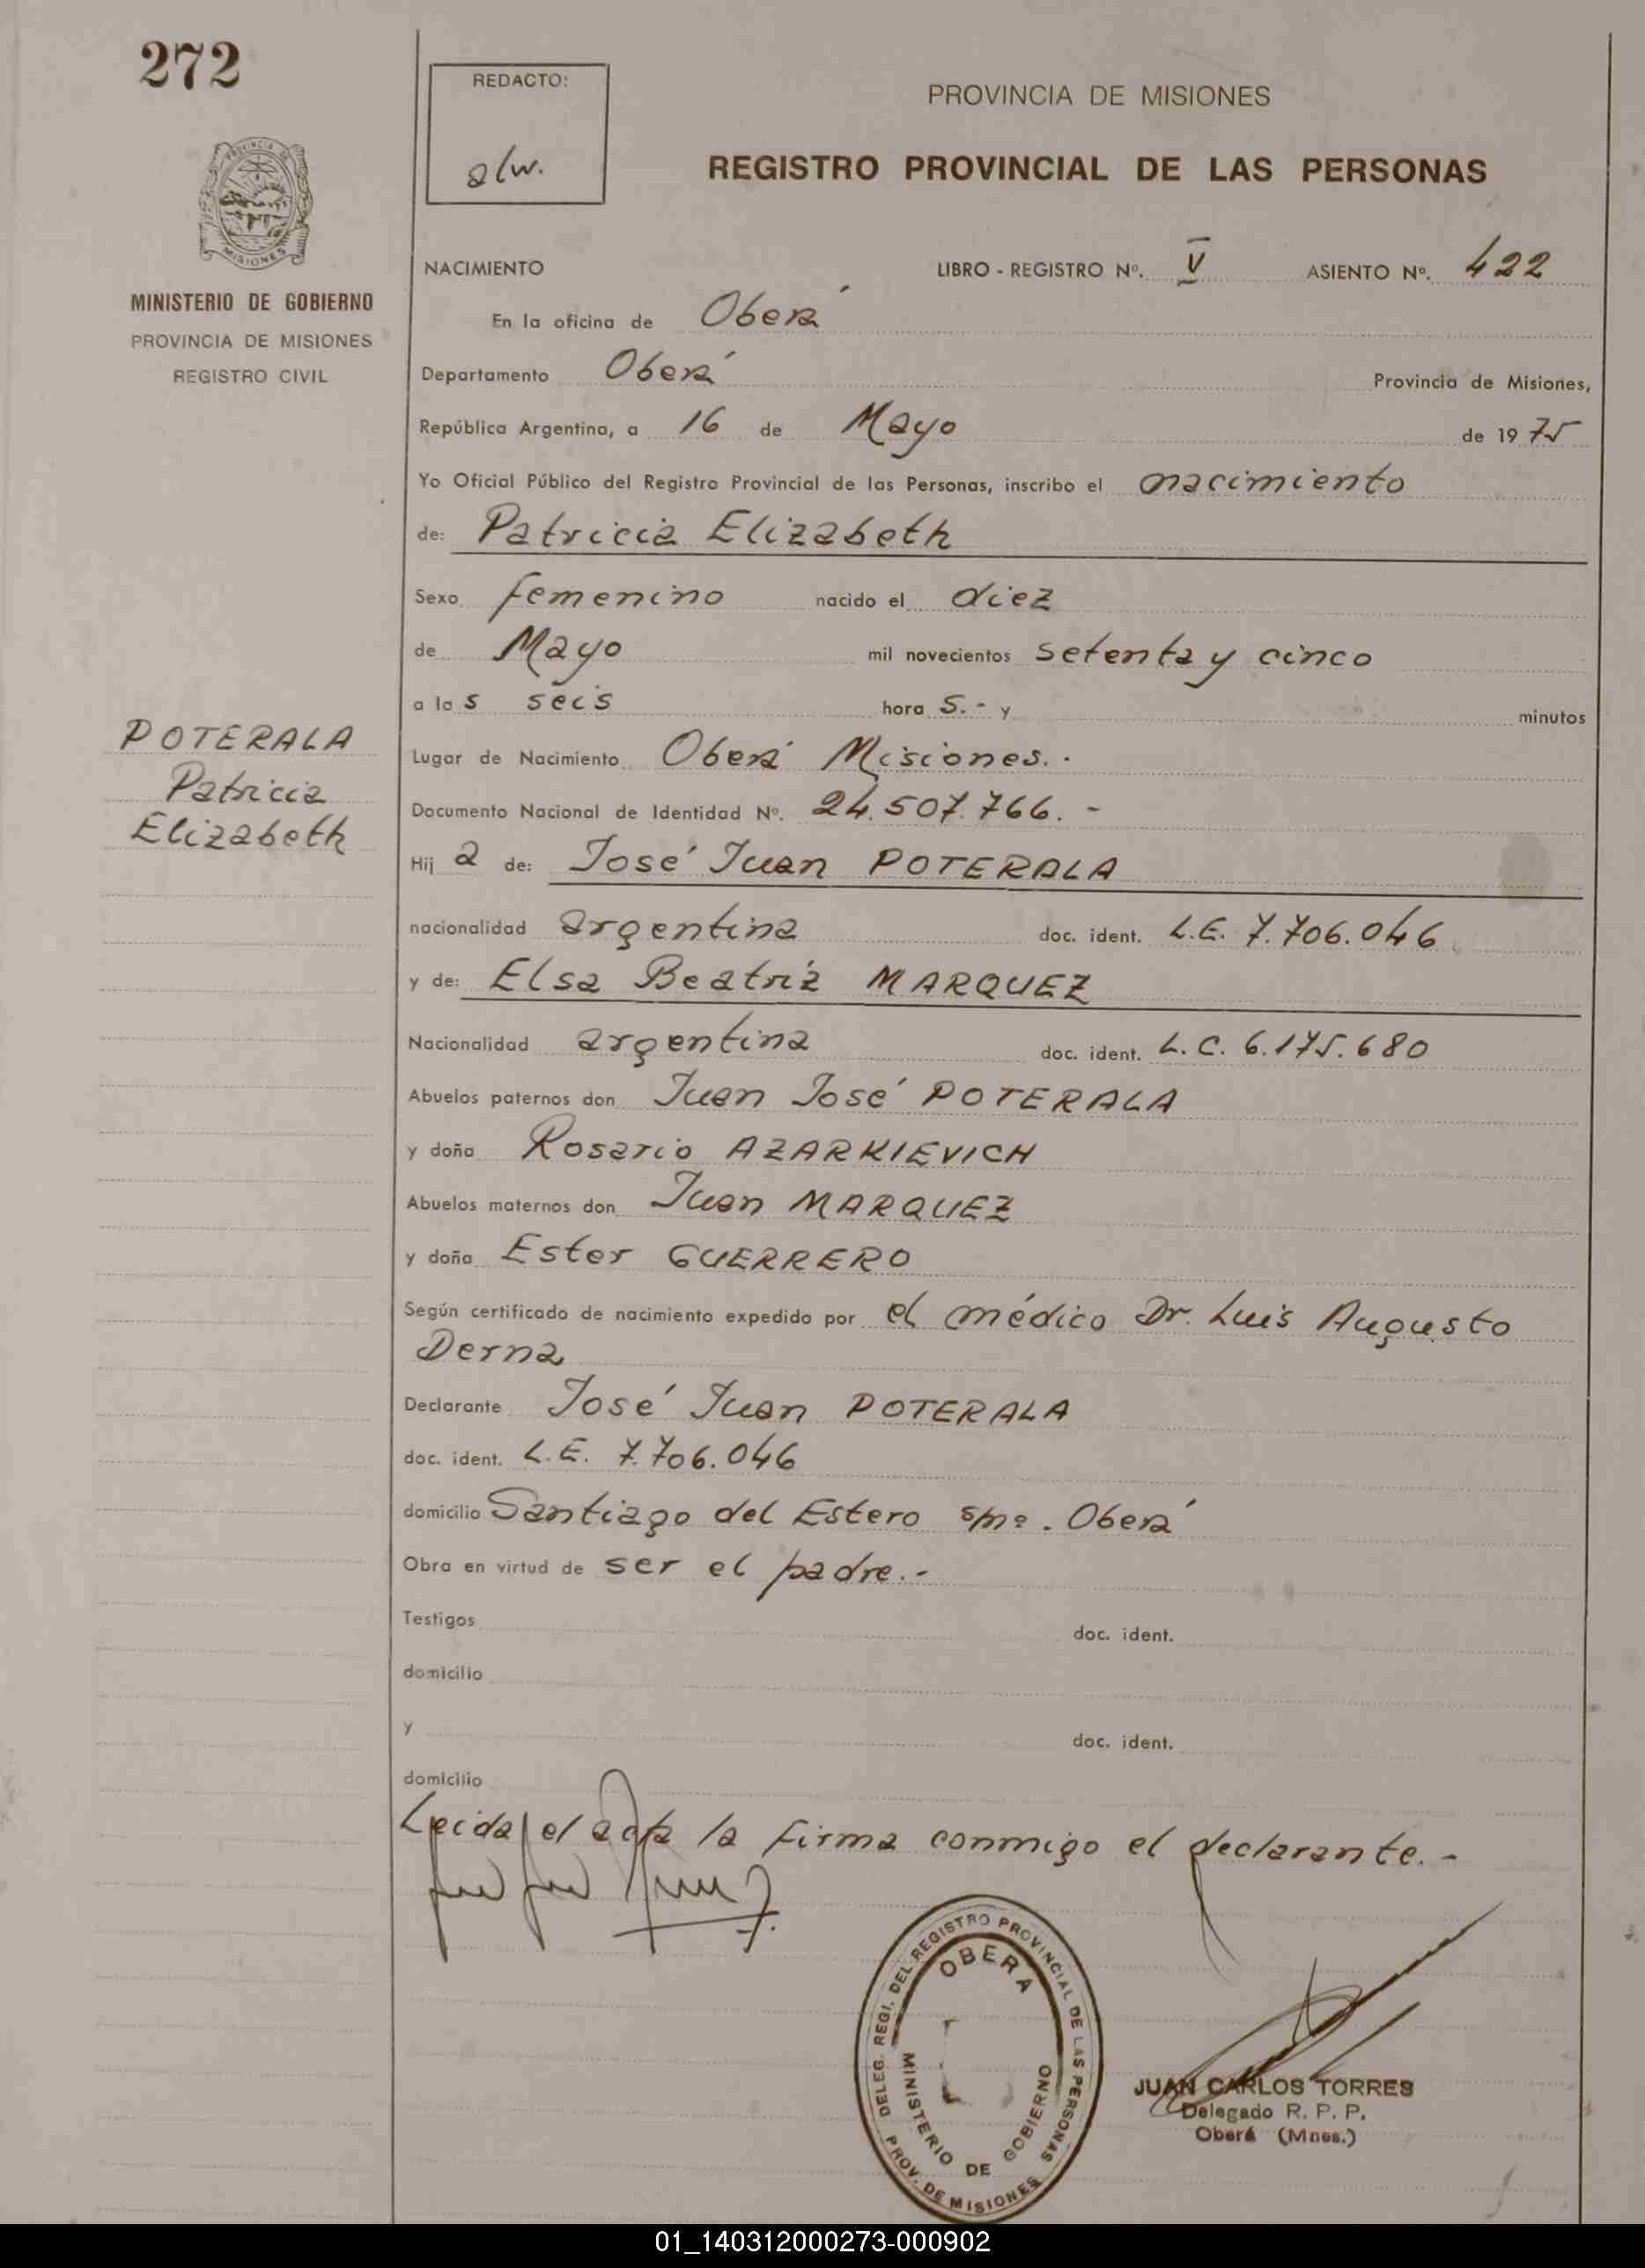 272
REDACTO:
alw.
PROVINCIA DE MISIONES
REGISTRO PROVINCIAL DE LAS PERSONAS
PROVINCIA DE
MISIONES
MINISTERIO DE GOBIERNO
PROVINCIA DE MISIONES
REGISTRO CIVIL
NACIMIENTO LIBRO - REGISTRO Nº. V ASIENTO Nº. 422
En la oficina de Oberá
Departamento Oberá Provincia de Misiones,
República Argentina, a 16 de Mayo de 1975
Yo Oficial Público del Registro Provincial de las Personas, inscribo el nacimiento
de: Patricia Elizabeth
Sexo femenino nacido el diez
de Mayo mil novecientos setenta y cinco
a las seis hora s.- y minutos
POTERALA
Patricia
Elizabeth
Lugar de Nacimiento Oberá Misiones.-
Documento Nacional de Identidad Nº. 24.507.766.-
Hija de: José Juan POTERALA
nacionalidad argentina doc. ident. L.E. 7.706.046
y de: Elsa Beatriz MARQUEZ
Nacionalidad argentina doc. ident. L.C. 6.175.680
Abuelos paternos don Juan José POTERALA
y doña Rosario AZARKIEVICH
Abuelos maternos don Juan MARQUEZ
y doña Ester GUERRERO
Según certificado de nacimiento expedido por el médico Dr. Luis Augusto
Derna
Declarante José Juan POTERALA
doc. ident. L.E. 7.706.046
domicilio Santiago del Estero s/nº. Oberá
Obra en virtud de ser el padre.-
Testigos doc. ident.
domicilio
y doc. ident.
domicilio
Leida el acta la firma conmigo el declarante.-
DELEG. REGI. DEL REGISTRO PROVINCIAL DE LAS PERSONAS
OBERA
MINISTERIO DE GOBIERNO
PROV. DE MISIONES
JUAN CARLOS TORRES
Delegado R. P. P.
Oberá (Mnes.)
01_140312000273-000902